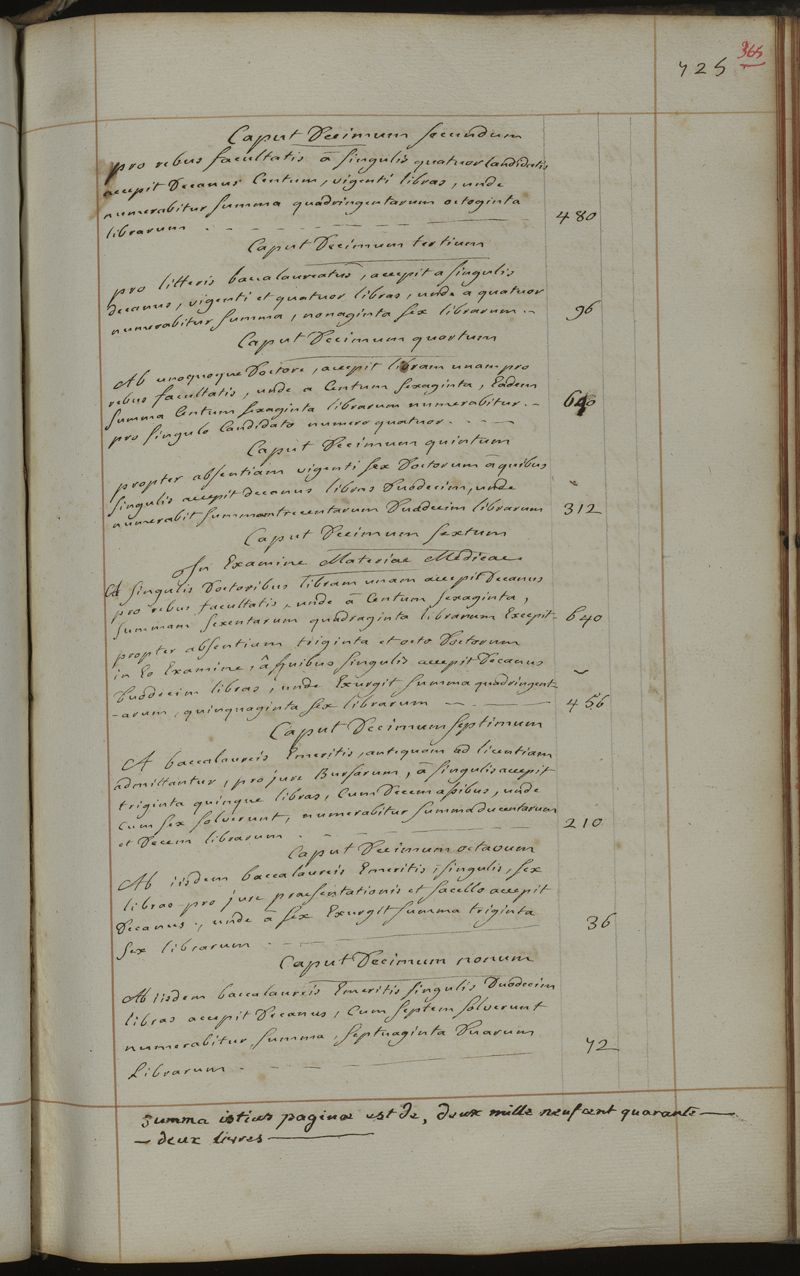 365
725
Caput Decimum secundum
pro rebus facultatis a singulis quatuor Candidatis
accepit Decanus Centum, vigenti libras, unde
numerabitur summa quadringentarum octoginta
librarum 480
Caput Decimum tertium
pro litteris baccalaureatus, accepit a singulis
decanus, vigenti et quatuor libras, unde a quatuor
numerabitur summa, nonaginta sex librarum. 96
Caput Decimum quartum
Ab unoquoque Doctore, accepit libram unam pro
rebus facultatis, unde a Centum sexaginta, Eadem
summa Centum sexaginta librarum numerabitur. 640
pro singulo Candidato numero quatuor.
Caput Decimum quintum
propter absentiam vigenti sex Doctorum a quibus
singulis accepit decanus libras Duodecim, unde
numerabit summam trecentarum Duodecim librarum 312
Caput Decimum sextum
In Examine Materiae Medicae
A singulis Doctoribus libram unam accepit Decanus
pro rebus facultatis, unde â Centum sexaginta,
summam sexentarum quadraginta librarum Excepit 640
propter absentiam triginta et octo Doctorum
in Eo Examine, â quibus singulis accepit Decanus
Duodecim libras, unde Exurgit summa quadringent-
-arum, quinquaginta sex librarum 456
Caput Decimum septimum
A baccalaureis Emeritis, antequam ad licentiam
admittantur, pro jure Bursarum, â singulis accepit
triginta quinque libras, Cum Decem assibus, unde
Cum sex solverunt, numerabitur summa ducentarum
et Decem librarum. 210
Caput Decimum octavum
Ab iisdem baccalaureis Emeritis, singulis, sex
libras pro jure praesentationis et sacello accepit
Decanus, unde â sex Exurgit summa triginta
sex librarum 36
Caput Decimum nonum
Ab iisdem baccalaureis Emeritis singulis Duodecim
libras accepit Decanus, Cum septem solverunt
numerabitur summa, septuaginta Duarum
Librarum. 72
Summa istius paginae est de, deux mille neuf cent quarante
- deux livres